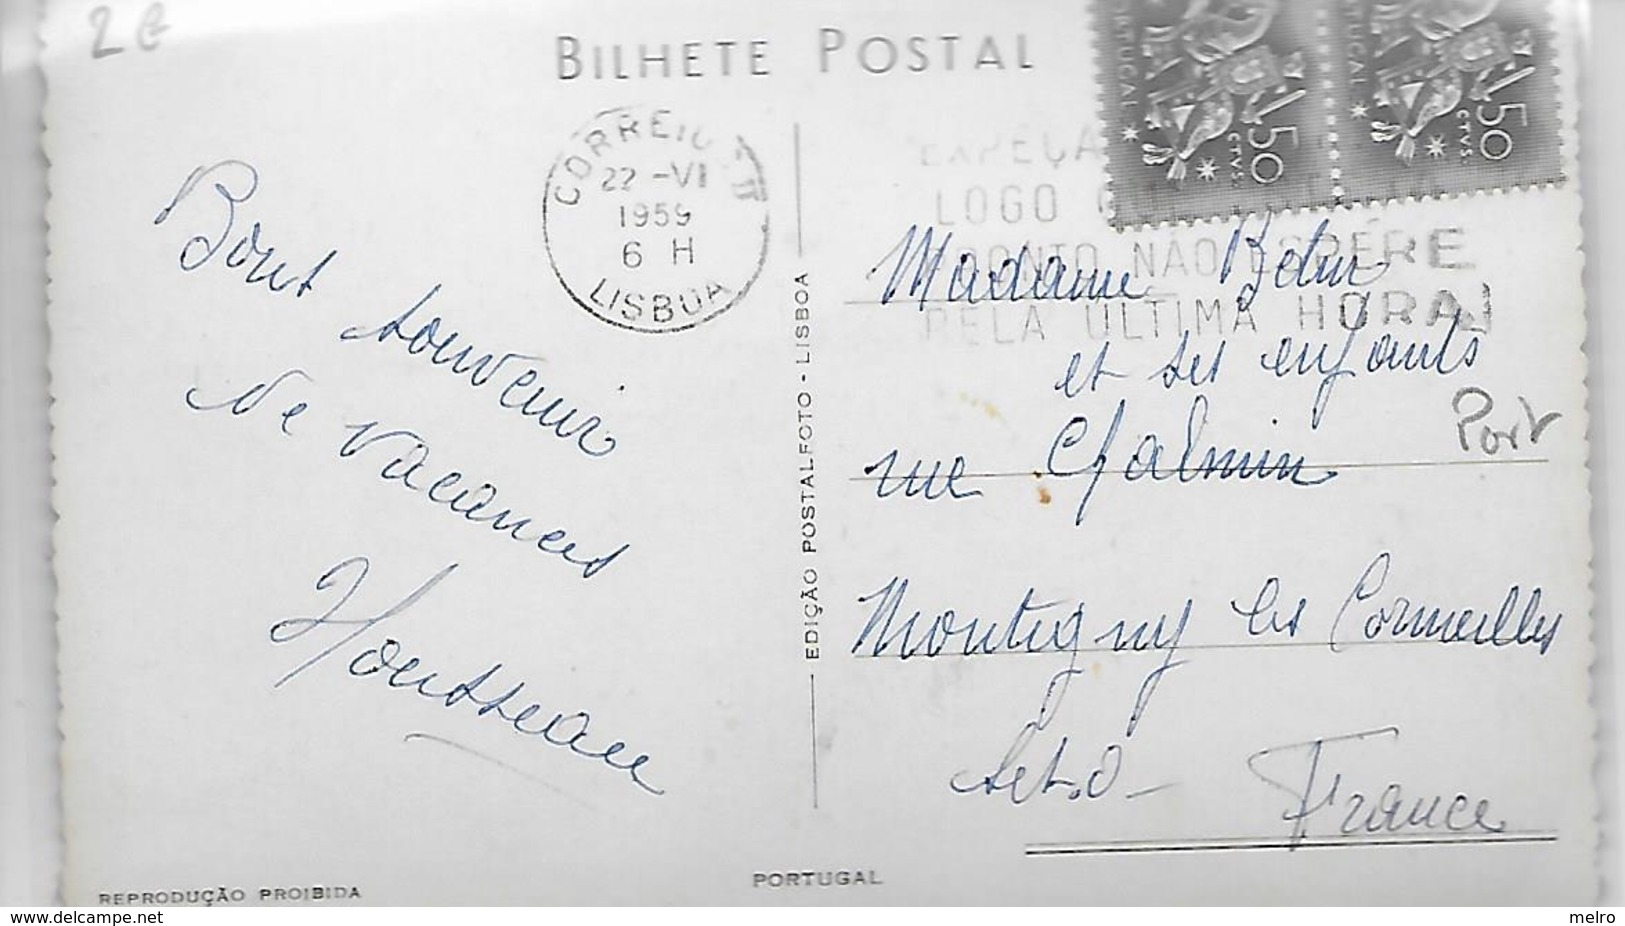 2€
BILHETE POSTAL
PORTUGAL
50 CTVS
PORTUGAL
50 CTVS
CORREIO
22 -VI
1959
6 H
LISBOA
EXPEÇA
LOGO
PRONTO NÃO ESPERE
PELA ÚLTIMA HORA
Bons souvenir
de vacances
Housseau
EDIÇÃO POSTALFOTO - LISBOA
Madame
et ses enfants
rue Chalmin
Port
Montigny les Cormeilles
S et. O -
France
REPRODUÇÃO PROIBIDA
PORTUGAL
www.delcampe.net
melro